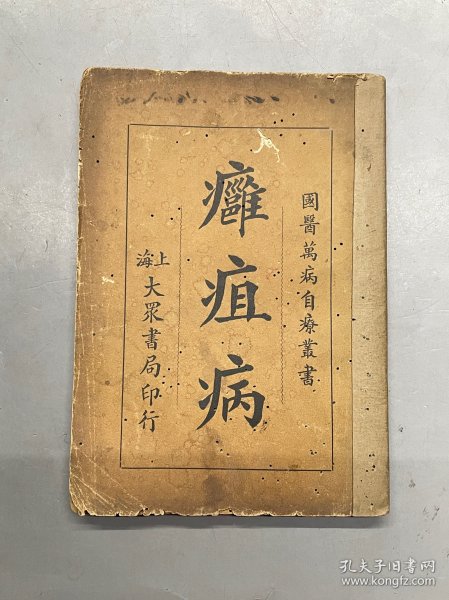 國醫萬病自療叢書
癰疽病
上海
大眾書局印行
孔夫子旧书网
www.kongfz.com